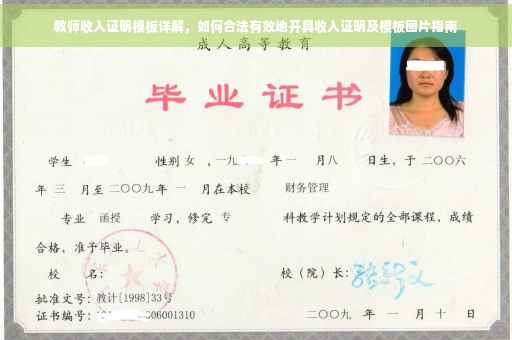 教师收入证明模板详解，如何合法有效地开具收入证明及模板图片指南
成人高等教育
毕业证书
学生 性别 女 ，一九 年 一 月 八 日生，于 二〇〇六
年 三 月至 二〇〇九 年 一 月在本校 财务管理
专业 函授 学习，修完 专 科教学计划规定的全部课程，成绩
合格，准予毕业。
校 名： 校（院）长：
批准文号：教计[1998]33号
证书编号： 006001310 二〇〇九 年 一 月 十 日